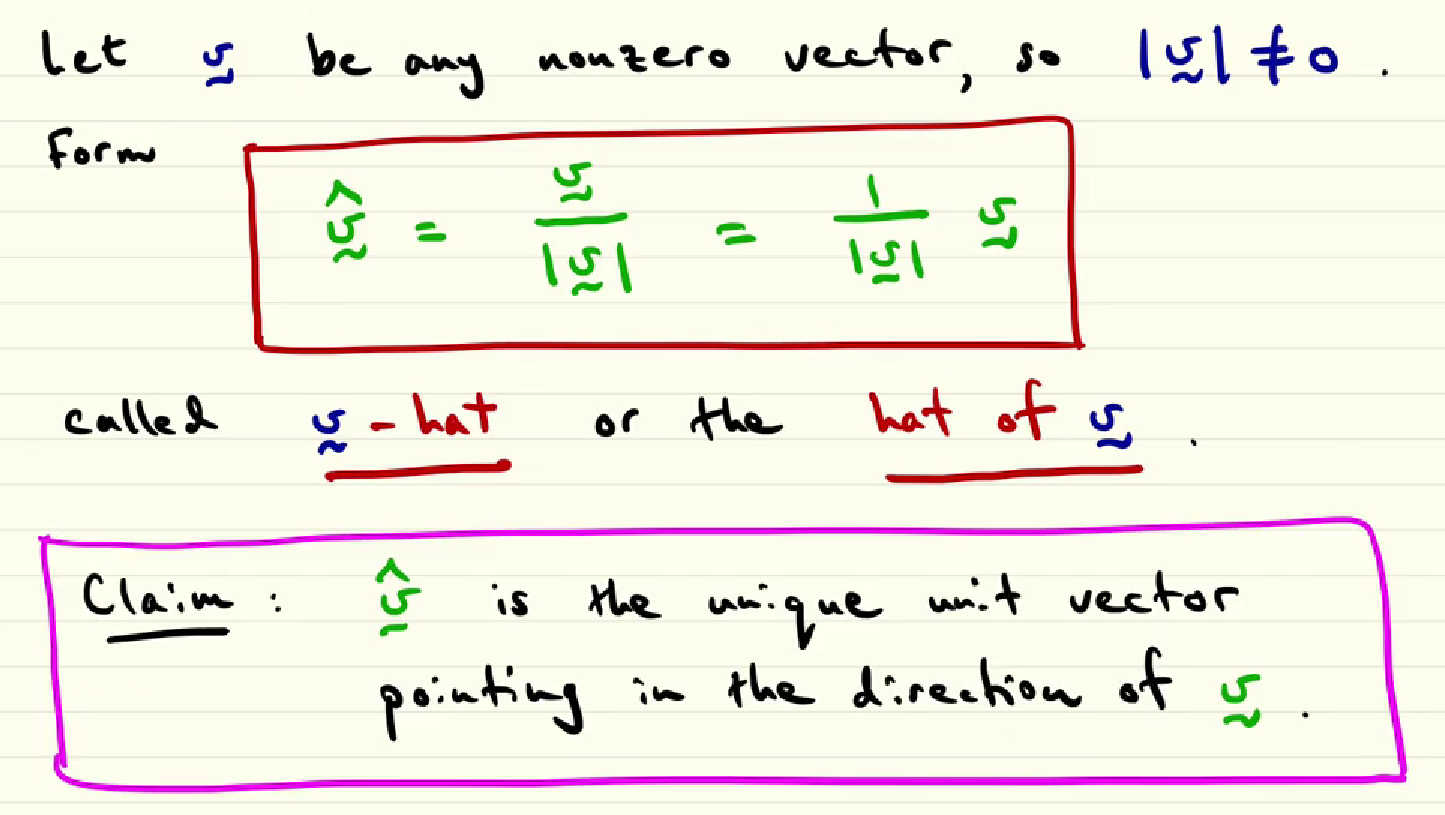 Let v̰ be any nonzero vector, so |v̰| ≠ 0 .
Form
v̰̂ = v̰/|v̰| = 1/|v̰| v̰
called v̰-hat or the hat of v̰ .
Claim : v̰̂ is the unique unit vector
pointing in the direction of v̰ .